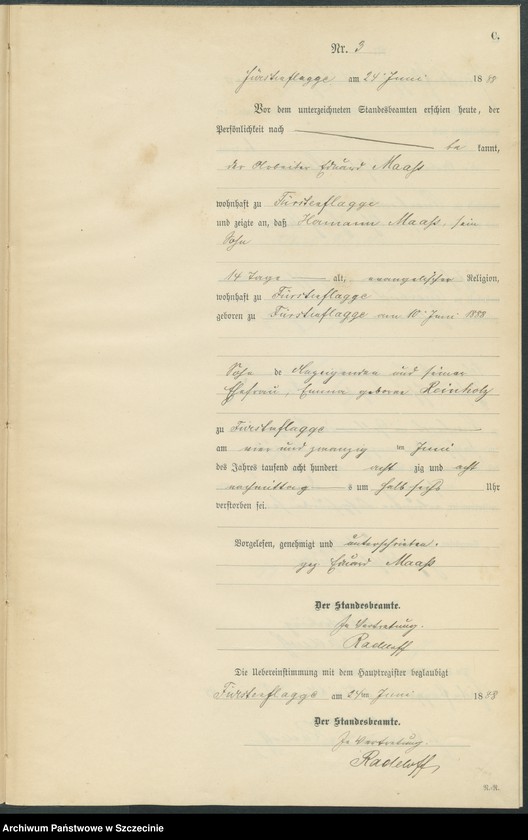 C.
Nr. 3
Fürstenflagge am 24 Juni 1888
Vor dem unterzeichneten Standesbeamten erschien heute, der
Persönlichkeit nach
be kannt,
der Arbeiter Eduard Maaß
wohnhaft zu Fürstenflagge
und zeigte an, daß Hermann Maaß, sein
Sohn
14 Tage alt, evangelischer Religion,
wohnhaft zu Fürstenflagge
geboren zu Fürstenflagge am 10 Juni 1888
Sohn des Anzeigenden und seiner
Ehefrau, Emma geborne Reinholz
zu Fürstenflagge
am vier und zwanzig ten Juni
des Jahres tausend acht hundert acht zig und acht
nachmittag s um halb sechs Uhr
verstorben sei.
Vorgelesen, genehmigt und unterschrieben.
gez Eduard Maaß
Der Standesbeamte.
In Vertretung.
Radeloff
Die Uebereinstimmung mit dem Hauptregister beglaubigt
Fürstenflagge am 24ten Juni 1888
Der Standesbeamte.
In Vertretung.
Radeloff
Archiwum Państwowe w Szczecinie